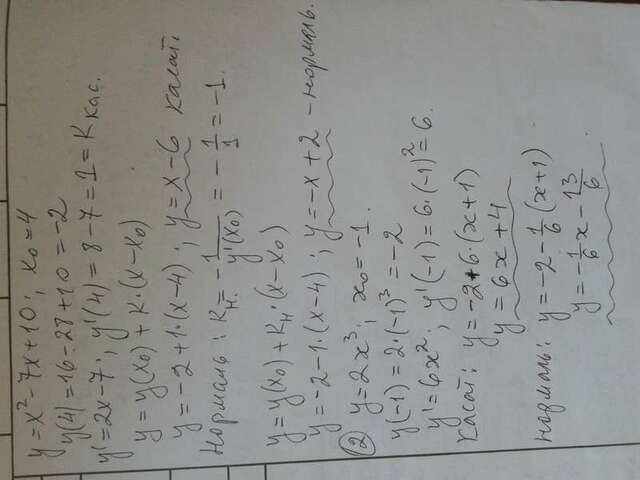 y = x² - 7x + 10; x₀ = 4
y(4) = 16 - 28 + 10 = -2
y' = 2x - 7; y'(4) = 8 - 7 = 1 = K кас.
y = y(x₀) + K·(x - x₀)
y = -2 + 1·(x - 4); y = x - 6 касат.
Нормаль: Kн. = -1/y'(x₀) = -1/1 = -1.
y = y(x₀) + Kн·(x - x₀)
y = -2 - 1·(x - 4); y = -x + 2 - нормаль.
② y = 2x³; x₀ = -1.
y(-1) = 2·(-1)³ = -2
y' = 6x²; y'(-1) = 6·(-1)² = 6.
касат: y = -2 + 6(x + 1)
y = 6x + 4
нормаль: y = -2 - 1/6 (x + 1)
y = -1/6 x - 13/6